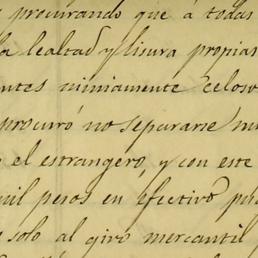 procurando que á todas
la lealtad y lisura propias
ntes nimiamente celoso
procuró no separarse nu
el estrangero, y con este
mil pesos en efectivo
solo al giro mercantil